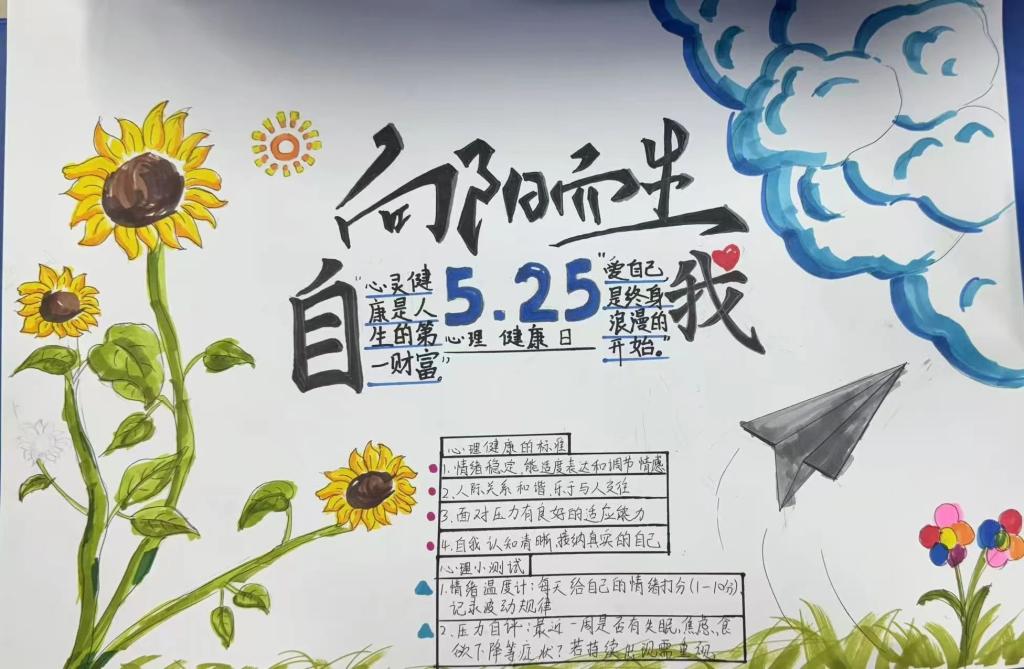 向阳而生
自
"心灵健
康是人
生的第
一财富。"
5.25
心理 健康日
"爱自己
是终身
浪漫的
开始。"
我
心理健康的标准
1.情绪稳定,能适度表达和调节情感
2.人际关系和谐,乐于与人交往
3.面对压力有良好的适应能力
4.自我认知清晰,接纳真实的自己
心理小测试
1.情绪温度计:每天给自己的情绪打分(1-10分),
记录波动规律
2.压力自评:最近一周是否有失眠,焦虑,食
欲下降等症状?若持续出现需重视